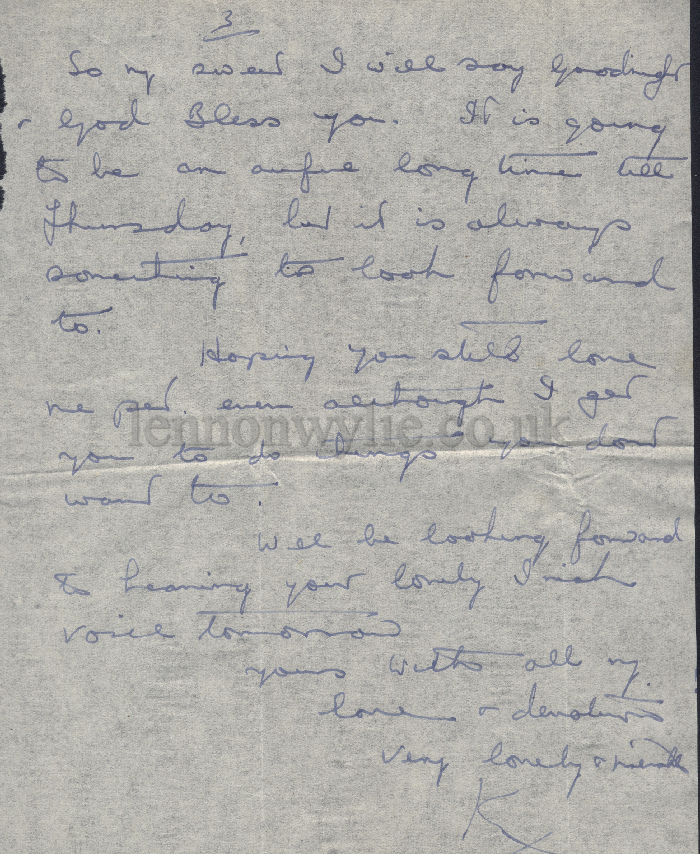 3
So my sweet I will say Goodnight
& God Bless you. It is going
to be an awful long time till
Thursday, but it is always
something to look forward
to.
Hoping you still love
me pet even although I get
you to do things "you dont
want to.
lennonwylie.co.uk
Will be looking forward
to hearing your lovely Irish
voice tomorrow
yours with all my
love & devotion
Very lonely &
K